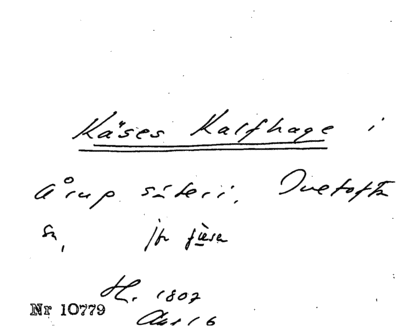 Käses Kalfhage i
Årup säteri, Ivetofta
sn, jfr fäsen
H. 1807
Akt 16
Nr 10779